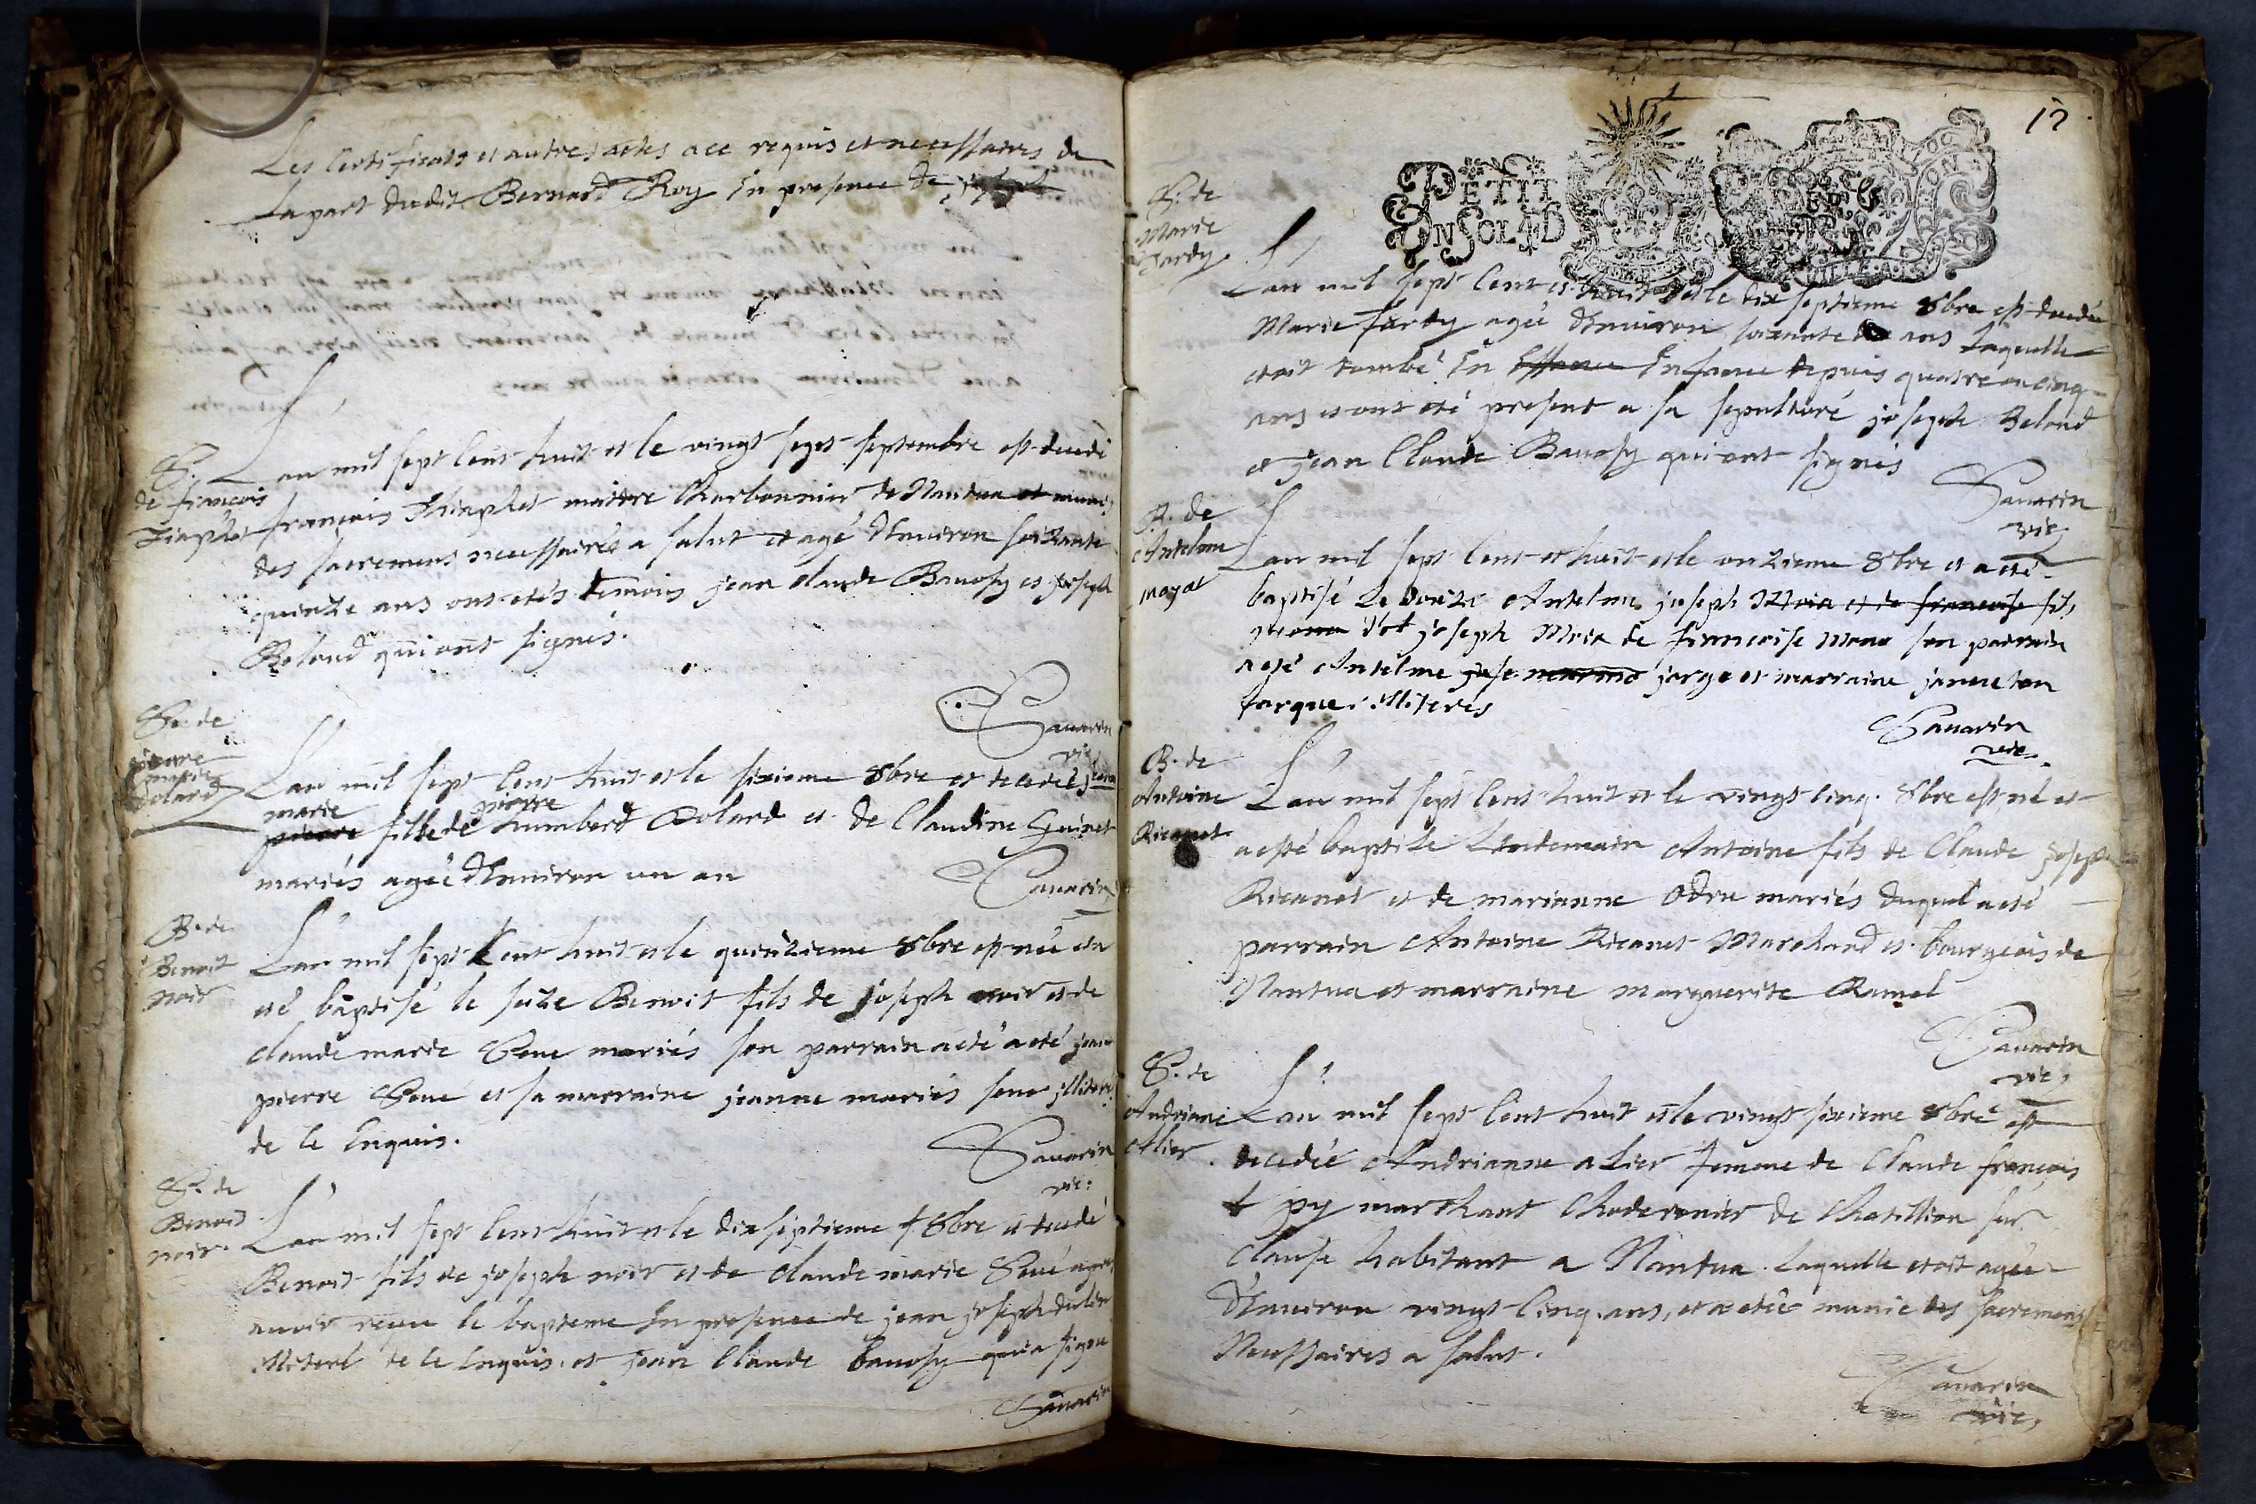 Les Certificats et autres actes a ce requis et necessaires de
la part dudit Bernard Roy En presence de
S.
de françois
Lan mil sept Cent huit et le vingt sept septembre est decedé
françois maitre Charbonnier de Nantua et muni
des sacremens necessaires a salut et agé d'Environ soixante
quinze ans ont etés temoins jean claude Bauosy et joseph
Beloud qui ont signés.
Sauarin
vic
Se. de
pierre
marie
Bolard
Lan mil sept Cent huit et le sixieme 8bre est decedée
marie pierre
fille de humberd Bolard et de Claudine Guinet
mariés agée d'Enuiron un an
Sauarin
B. de
Benoit
noir
Lan mil sept Cent huit et le quinzieme 8bre est née et a
eté baptisé le seize Benoit fils de joseph noir et de
claude marie Seue mariés son parrain a eté a eté jean
pierre Seue et sa marraine jeanne mariés seue jlliterés
de ce Enquis.
Sauarin
vic.
S. de
Benoit
noir.
Lan mil sept Cent huit et le dix septieme 8bre est decedé
Benoit fils de joseph noir et de claude marie Seué apres
auoir receu le bapteme En presence de jean joseph
illiteré de ce Enquis. et jean Claude bauosy qui a signé
Sauarin
12
PETIT
EN SOL4D
S. de
Marie
Jardy.
Lan mil sept Cent et huit et le dix septieme 8bre est decedée
Marie Jardy agée d'Enuiron soixante ans Laquelle
etoit tombé En Enfance depuis quatre ou cinq
ans et ont eté present a sa sepulturé joseph Beloud
et jean Claude Bauosy qui ont signés
Sauarin
vic
B. de
Antelme
Lan mil sept Cent et huit et le onzieme 8bre et a eté
baptisé Le douze Antelme joseph et de francoise fils
joseph de francoise son parrain
a eté Antelme jorge et marraine janneton
jorque illiterés
Sauarin
vic.
B. de
Antoine
Ricanet
Lan mil sept Cent huit et le vingt Cinq. 8bre est né et
a esté baptisé Lendemain Antoine fils de Claude joseph
Ricanet et de marianne Odru mariés duquel a eté
parrain Antoine Ricanet Marchand et bourgeois de
Nantua et marraine marguerite Ramel
Sauarin
vic.
S. de
Andriane
Atier.
Lan mil sept Cent huit et le vingt sixieme 8bre est
decedée Andrianne atier femme de Claude françois
py marchant Choderonier de Chatillion sur
Clause habitant a Nantua. Laquelle etoit agée
d'Enuiron vingt Cinq. ans, et a etée munie des sacremens
Necessaires a salut.
Sauarin
vic.